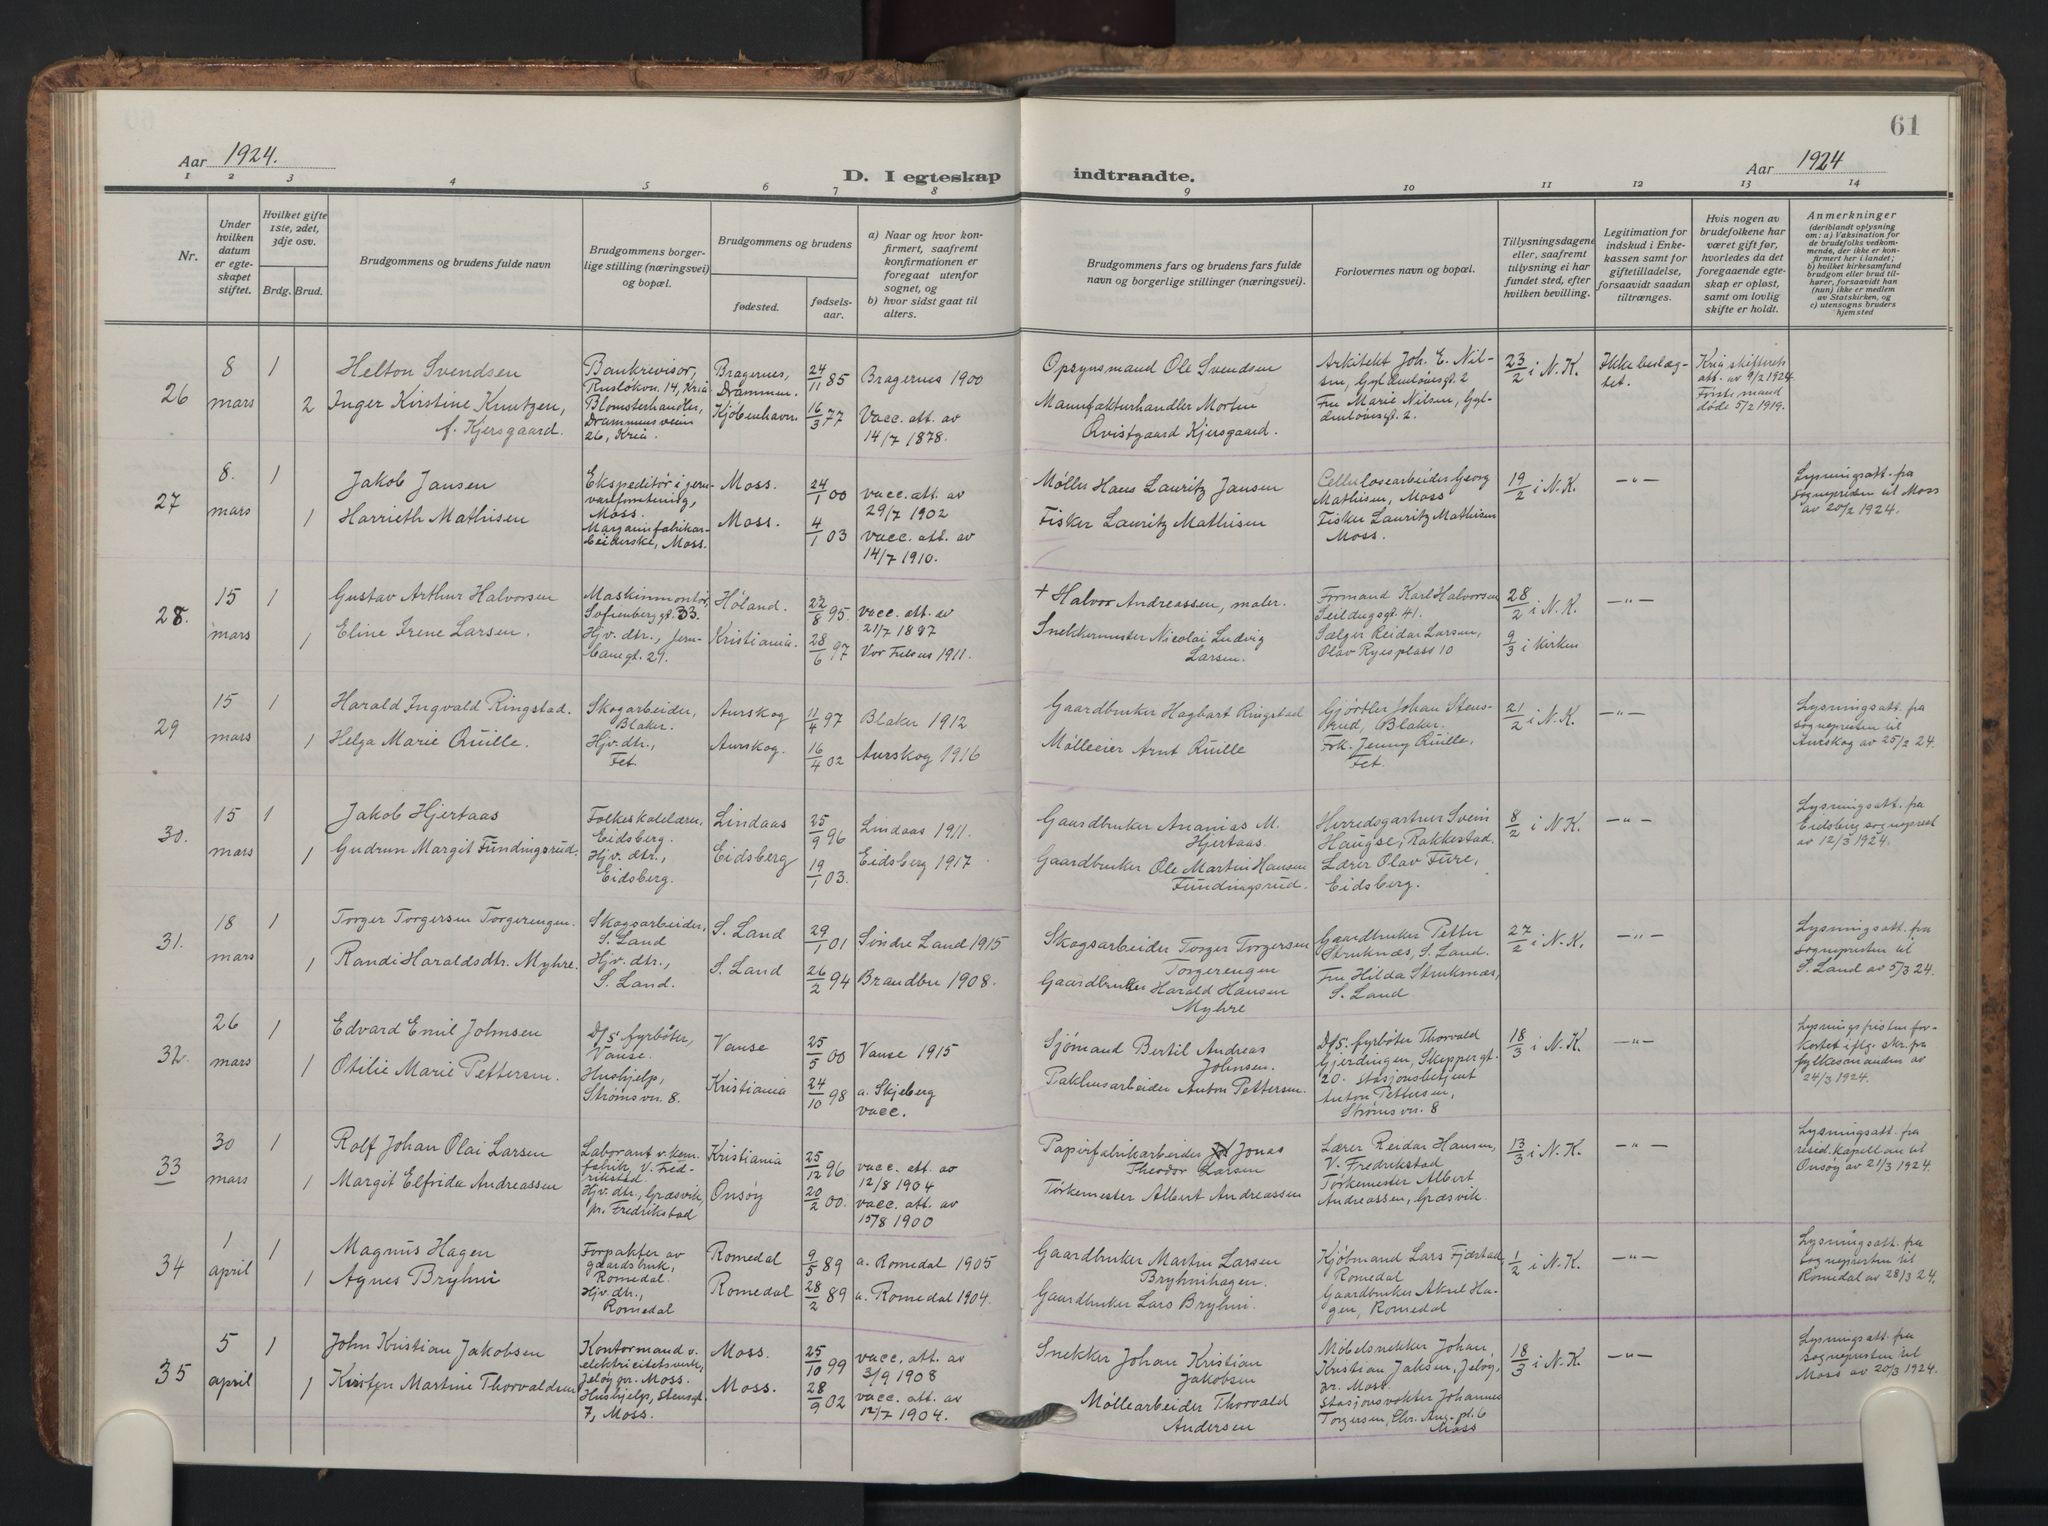 61
Aar 1924.
D. I egteskap indtraadte.
Aar 1924
1 2 3 4 5 6 7 8 9 10 11 12 13 14
Nr.
Under hvilken datum er egteskapet stiftet.
Hvilket gifte 1ste, 2det, 3dje osv.
Brdg. Brud.
Brudgommens og brudens fulde navn
Brudgommens borgerlige stilling (næringsvei) og bopæl.
Brudgommens og brudens
fødested.
fødselsaar.
a) Naar og hvor konfirmert, saafremt konfirmationen er foregaat utenfor sognet, og
b) hvor sidst gaat til alters.
Brudgommens fars og brudens fars fulde navn og borgerlige stillinger (næringsvei).
Forlovernes navn og bopæl.
Tillysningsdagene eller, saafremt tillysning ei har fundet sted, efter hvilken bevilling.
Legitimation for indskud i Enkekassen samt for giftetilladelse, forsaavidt saadan tiltrænges.
Hvis nogen av brudefolkene har været gift før, hvorledes da det foregaaende egteskap er opløst, samt om lovlig skifte er holdt.
Anmerkninger (deriblandt oplysning om: a) Vaksination for de brudefolks vedkommende, der ikke er konfirmert her i landet; b) hvilket kirkesamfund brudgom eller brud tilhører, forsaavidt han (hun) ikke er medlem av Statskirken, og c) utensogns bruders hjemsted
26
8 mars
1
2
Helton Svendsen
Inger Kirstine Knutzen, f. Kjersgaard.
Bankrevisor, Ruseløkvn. 14, Kria
Blomsterhandler, Drammensveien 26, Kria.
Bragernes, Drammen.
Kjøbenhavn.
24/11 85
16/3 77
Bragernes 1900
Vacc. att. av 14/7 1878.
Opsynsmand Ole Svendsen
Manufakturhandler Morten Qvistgaard Kjersgaard.
Arkitekt Joh. E. Nilsen, Gyldenløvesgt. 2
Fru Marie Nilsen, Gyldenløvesgt. 2.
23/2 i N.K.
Ikke beslægtet.
Kria skifterett att. av 9/2 1924. Første mand døde 5/2 1919.
27
8. mars
1
1
Jakob Jansen
Harrieth Mathisen
Ekspeditör i jernvareforretning, Moss.
Margarinfabrikarbeiderske, Moss.
Moss.
Moss.
24/1 00
4/1 03
vacc. att. av 29/7 1902
vacc. att. av 14/7 1910.
Møller Hans Lauritz Jansen
Fisker Lauritz Mathisen
Cellulosearbeider Georg Mathisen, Moss
Fisker Lauritz Mathisen Moss.
19/2 i N.K.
— " —
Lysningsatt. fra sognepresten til Moss av 20/2 1924.
28.
15 mars
1
1
Gustav Arthur Halvorsen
Eline Irene Larsen.
Maskinmontör, Sofienberggt. 33.
Hjv. dtr., Jernbanegt. 21.
Høland.
Kristiania.
22/8 95
28/6 97
vacc. att. av 21/7 1897
Vor Frelsers 1911.
+ Halvor Andreassen, maler.
Snekkermester Nicolai Ludvig Larsen.
Formand Karl Halvorsen Seildugsgt. 41.
Sælger Reidar Larsen, Olav Ryesplass 10
28/2 i N.K.
9/3 i kirken
— " —
29
15 mars
1
1
Harald Ingvald Ringstad.
Helga Marie Quille.
Skogarbeider, Blaker.
Hjv. dtr., Fet.
Aurskog
Aurskog.
11/4 97
16/4 02
Blaker 1912
Aurskog 1916
Gaardbruker Hagbart Ringstad
Mølleeier Arnt Quille
Gjørtler Johan Stensrud, Blaker.
Frk. Jenny Quille, Fet.
21/2 i N.K.
— " —
Lysningsatt. fra sognepresten til Aurskog av 25/2 24.
30.
15 mars
1
1
Jakob Hjertaas
Gudrun Margit Fundingsrud.
Folkeskolelærer, Eidsberg.
Hjv. dtr., Eidsberg.
Lindaas
Eidsberg
25/9 96
19/1 03.
Lindaas 1911.
Eidsberg 1917
Gaardbruker Ananias M. Hjertaas.
Gaardbruker Ole Martin Hansen Fundingsrud.
Herredsgartner Svein Haugse, Rakkestad.
Lærer Olav Fure, Eidsberg.
8/2 i N.K.
— " —
Lysningsatt. fra Eidsberg sogneprest av 12/3 1924.
31.
18 mars
1
1
Torger Torgersen Torgerengen.
Randi Haraldsdtr. Myhre.
Skogsarbeider, S. Land
Hjv. dtr., S. Land.
S. Land
S. Land
29/1 01
26/2 94
Søndre Land 1915
Brandbu 1908.
Skogsarbeider Torger Torgersen Torgerengen
Gaardbruker Harald Hansen Myhre
Gaardbruker Petter Struknæs, S. Land.
Fru Hilda Struknæs, S. Land
27/2 i N.K.
— " —
Lysningsatt. fra sognepresten til S. Land av 5/3 24.
32.
26 mars
1
1
Edvard Emil Johnsen
Otilie Marie Pettersen.
D/S. fyrböter, Vanse.
Hushjelp, Strømsvn. 8.
Vanse
Kristiania
25/5 00
24/10 98
Vanse 1915
a. Skjeberg vacc.
Sjømand Bertil Andreas Johnsen.
Pakhusarbeider Anton Pettersen.
D/S. fyrbøter Thorvald Gjerdingen, Skippergt. 20.
Stasjonsbetjent Anton Pettersen, Strømsvn. 8
18/3 i N.K.
— " —
Lysningsfristen forkortet iflg. skr. fra fylkesmanden av 24/3 1924.
33
30 mars
1
1
Rolf Johan Olai Larsen
Margit Elfrida Andreassen
Laborant v. kem. fabrik, V. Fredrikstad
Hjv. dtr., Græsvik pr. Fredrikstad
Kristiania
Onsøy
25/12 96
20/2 00.
vacc. att. av 12/8 1904
vacc. att. av 15/8 1900
Papirfabrikarbeider Jonas Theodor Larsen
Tørkemester Albert Andreassen
Lærer Reidar Hansen, V. Fredrikstad
Tørkemester Albert Andreassen, Græsvik.
13/3 i N.K.
— " —
Lysningsatt. fra resid. kapellan til Onsøy av 21/3 1924.
34
1 april
1
1
Magnus Hagen
Agnes Bryhni
Forpakter av gaardsbruk, Romedal.
Hjv. dtr., Romedal
Romedal
Romedal
9/5 89
28/2 89
a. Romedal 1905
a. Romedal 1904.
Gaardbruker Martin Larsen Bryhnihagen.
Gaardbruker Lars Bryhni.
Kjøbmand Lars Fjæstad, Romedal
Gaardbruker Aksel Hagen, Romedal
1/2 i N.K.
— " —
Lysningsatt. fra sognepresten til Romedal av 28/3 24.
35
5 april
1
1
John Kristian Jakobsen
Kirsten Martine Thorvaldsen
Kontormand v. elektricitetsverk, Jeløy pr. Moss.
Hushjelp, Stensgt. 7, Moss.
Moss.
Moss.
25/10 99
28/9 02
vacc. att. av 3/9 1908
vacc. att. av 12/7 1904.
Snekker Johan Kristian Jakobsen
Møllearbeider Thorvald Andersen
Møbelsnekker Johan Kristian Jakobsen, Jeløy, pr. Moss.
Stasjonsvokter Johannes Torgersen, Chr. Aug. pl. 6 Moss
18/3 i N.K.
— " —
Lysningsatt. fra sognepresten til Moss av 20/3 1924.